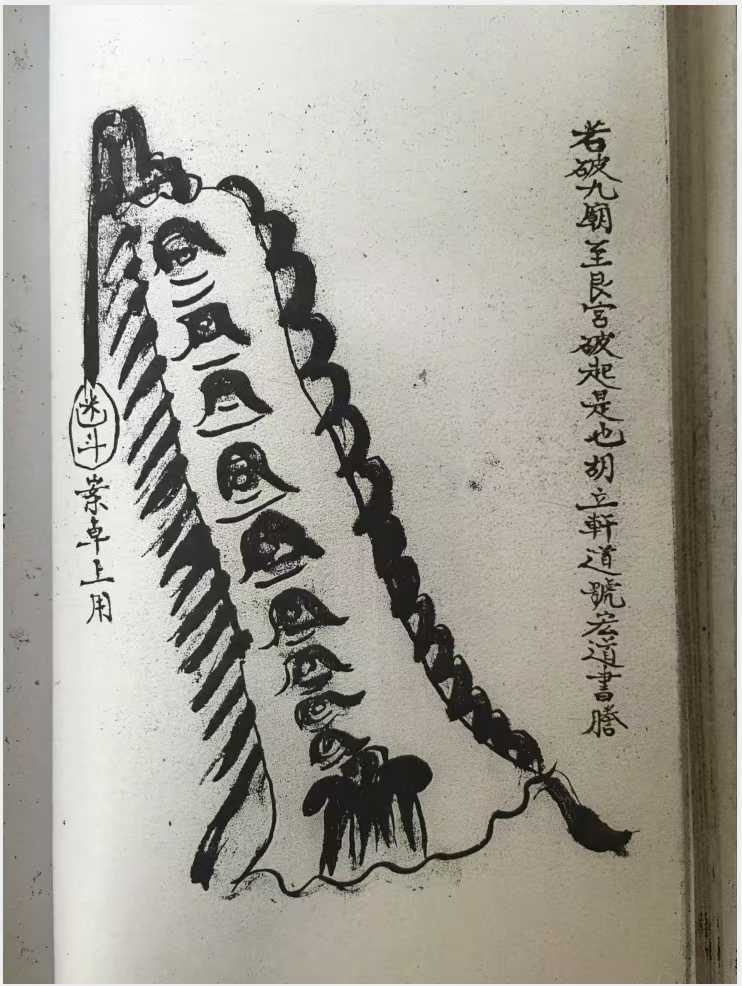 若破九廟至艮宮破起是也胡立軒道號宏道書謄
米斗
案卓上用